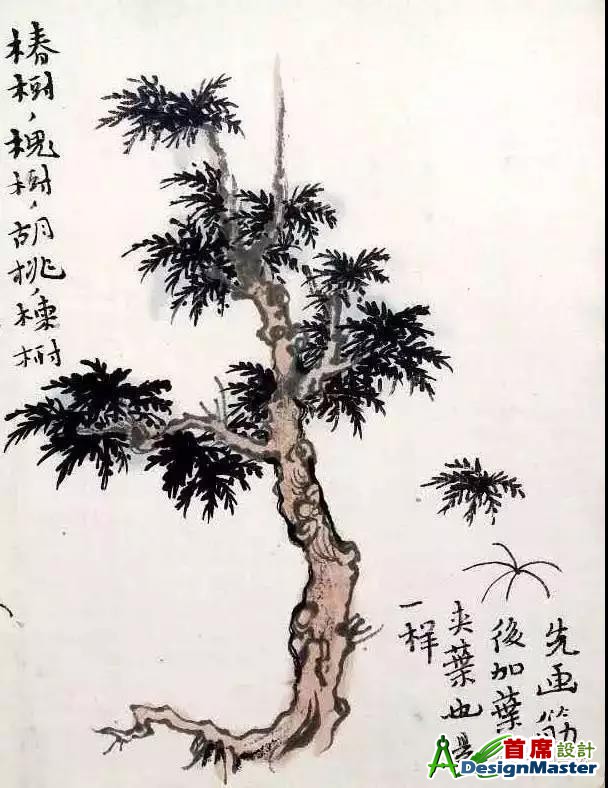 椿樹、槐樹、胡桃、楝树
先画筋
後加葉
夹葉也是
一样
首席設計
DesignMaster